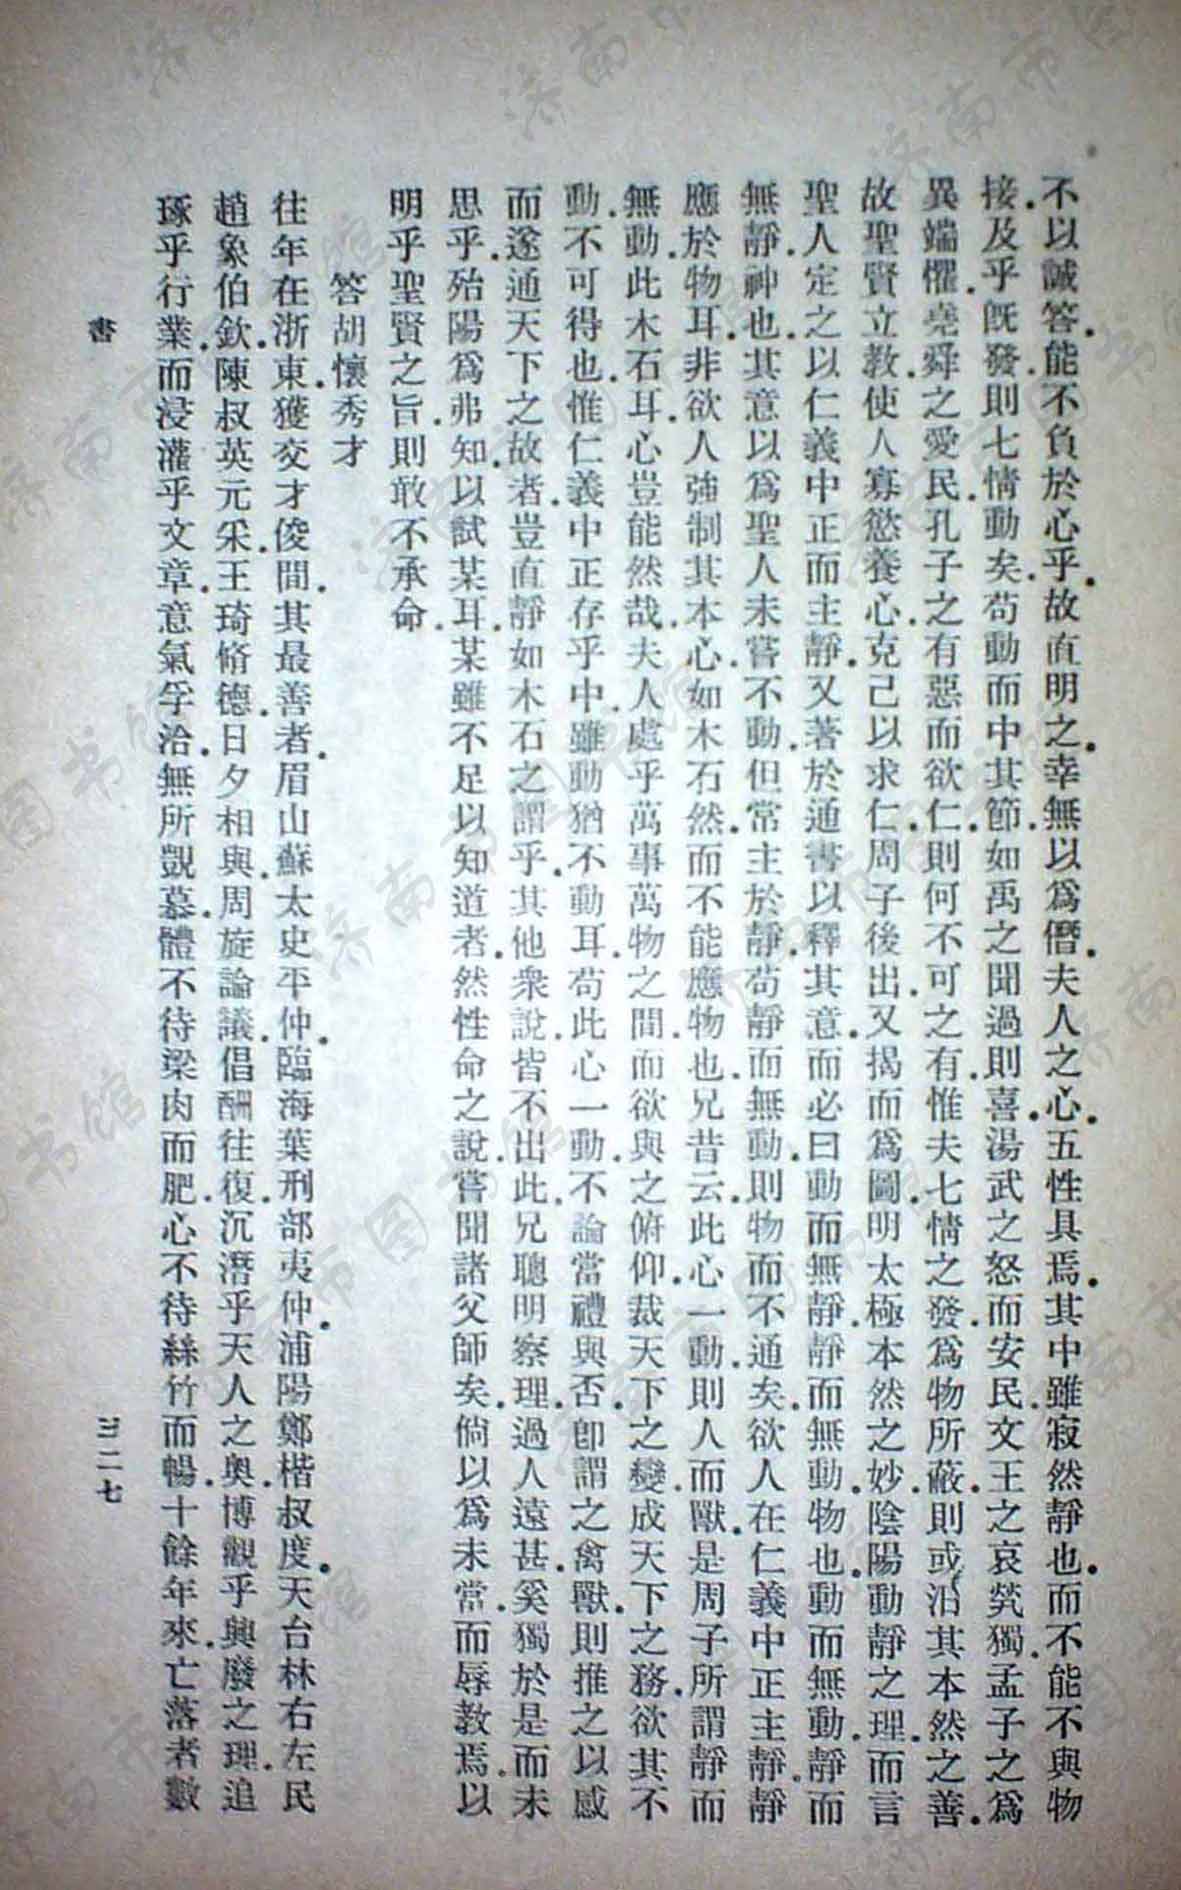 不以誠答．能不負於心乎．故直明之．幸無以爲僭．夫人之心．五性具焉．其中雖寂然靜也．而不能不與物
接．及乎既發．則七情動矣．苟動而中其節．如禹之聞過則喜．湯武之怒而安民．文王之哀煢獨．孟子之爲
異端懼．堯舜之愛民．孔子之有惡而欲仁．則何不可之有．惟夫七情之發．爲物所蔽．則或沿其本然之善．
故聖賢立敎．使人寡慾養心．克己以求仁．周子後出．又揭而爲圖．明太極本然之妙．陰陽動靜之理．而言
聖人定之以仁義中正而主靜．又著於通書以釋其意．而必曰動而無靜．靜而無動．物也．動而無動．靜而
無靜．神也．其意以爲聖人未嘗不動．但常主於靜．苟靜而無動．則物而不通矣．欲人在仁義中正主靜．靜
應於物耳．非欲人強制其本心．如木石然．而不能應物也．兄昔云．此心一動．則人而獸．是周子所謂靜而
無動．此木石耳．心豈能然哉．夫人處乎萬事萬物之間．而欲與之俯仰．裁天下之變．成天下之務．欲其不
動．不可得也．惟仁義中正存乎中．雖動猶不動耳．苟此心一動．不論當禮與否．卽謂之禽獸．則推之以感
而遂通天下之故者．豈直靜如木石之謂乎．其他衆說．皆不出此．兄聰明察理．過人遠甚．奚獨於是而未
思乎．殆陽爲弗知．以試某耳．某雖不足以知道者．然性命之說．嘗聞諸父師矣．倘以爲未當．而辱敎焉．以
明乎聖賢之旨．則敢不承命．
答胡懷秀才
往年在浙東．獲交才俊間．其最善者．眉山蘇太史平仲．臨海葉刑部夷仲．浦陽鄭楷叔度．天台林右左民
趙象伯欽．陳叔英元采．王琦脩德．日夕相與．周旋論議．倡酬往復．沉潛乎天人之奧．博觀乎興廢之理．追
琢乎行業．而浸灌乎文章．意氣孚洽．無所覬慕．體不待粱肉而肥．心不待絲竹而暢．十餘年來．亡落者數
書
三二七